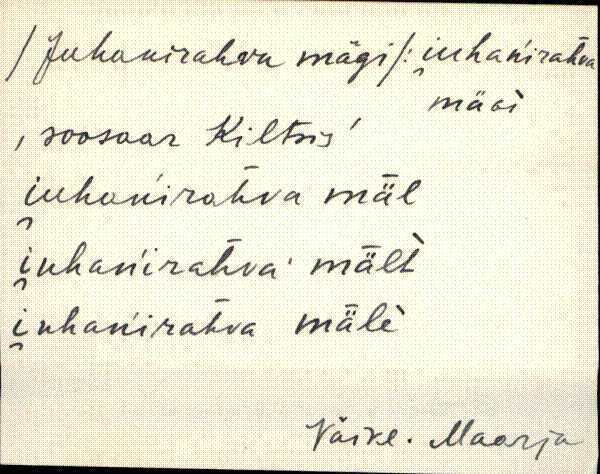 /Juhanirahva mägi/: i̯uhań́irahva
mäǵì
‚ soosaar Kiltsis’
i̯uhańirahva mäl
i̯uhańirahva mält̀
i̯uhańirahva mälè
Väike-Maarja